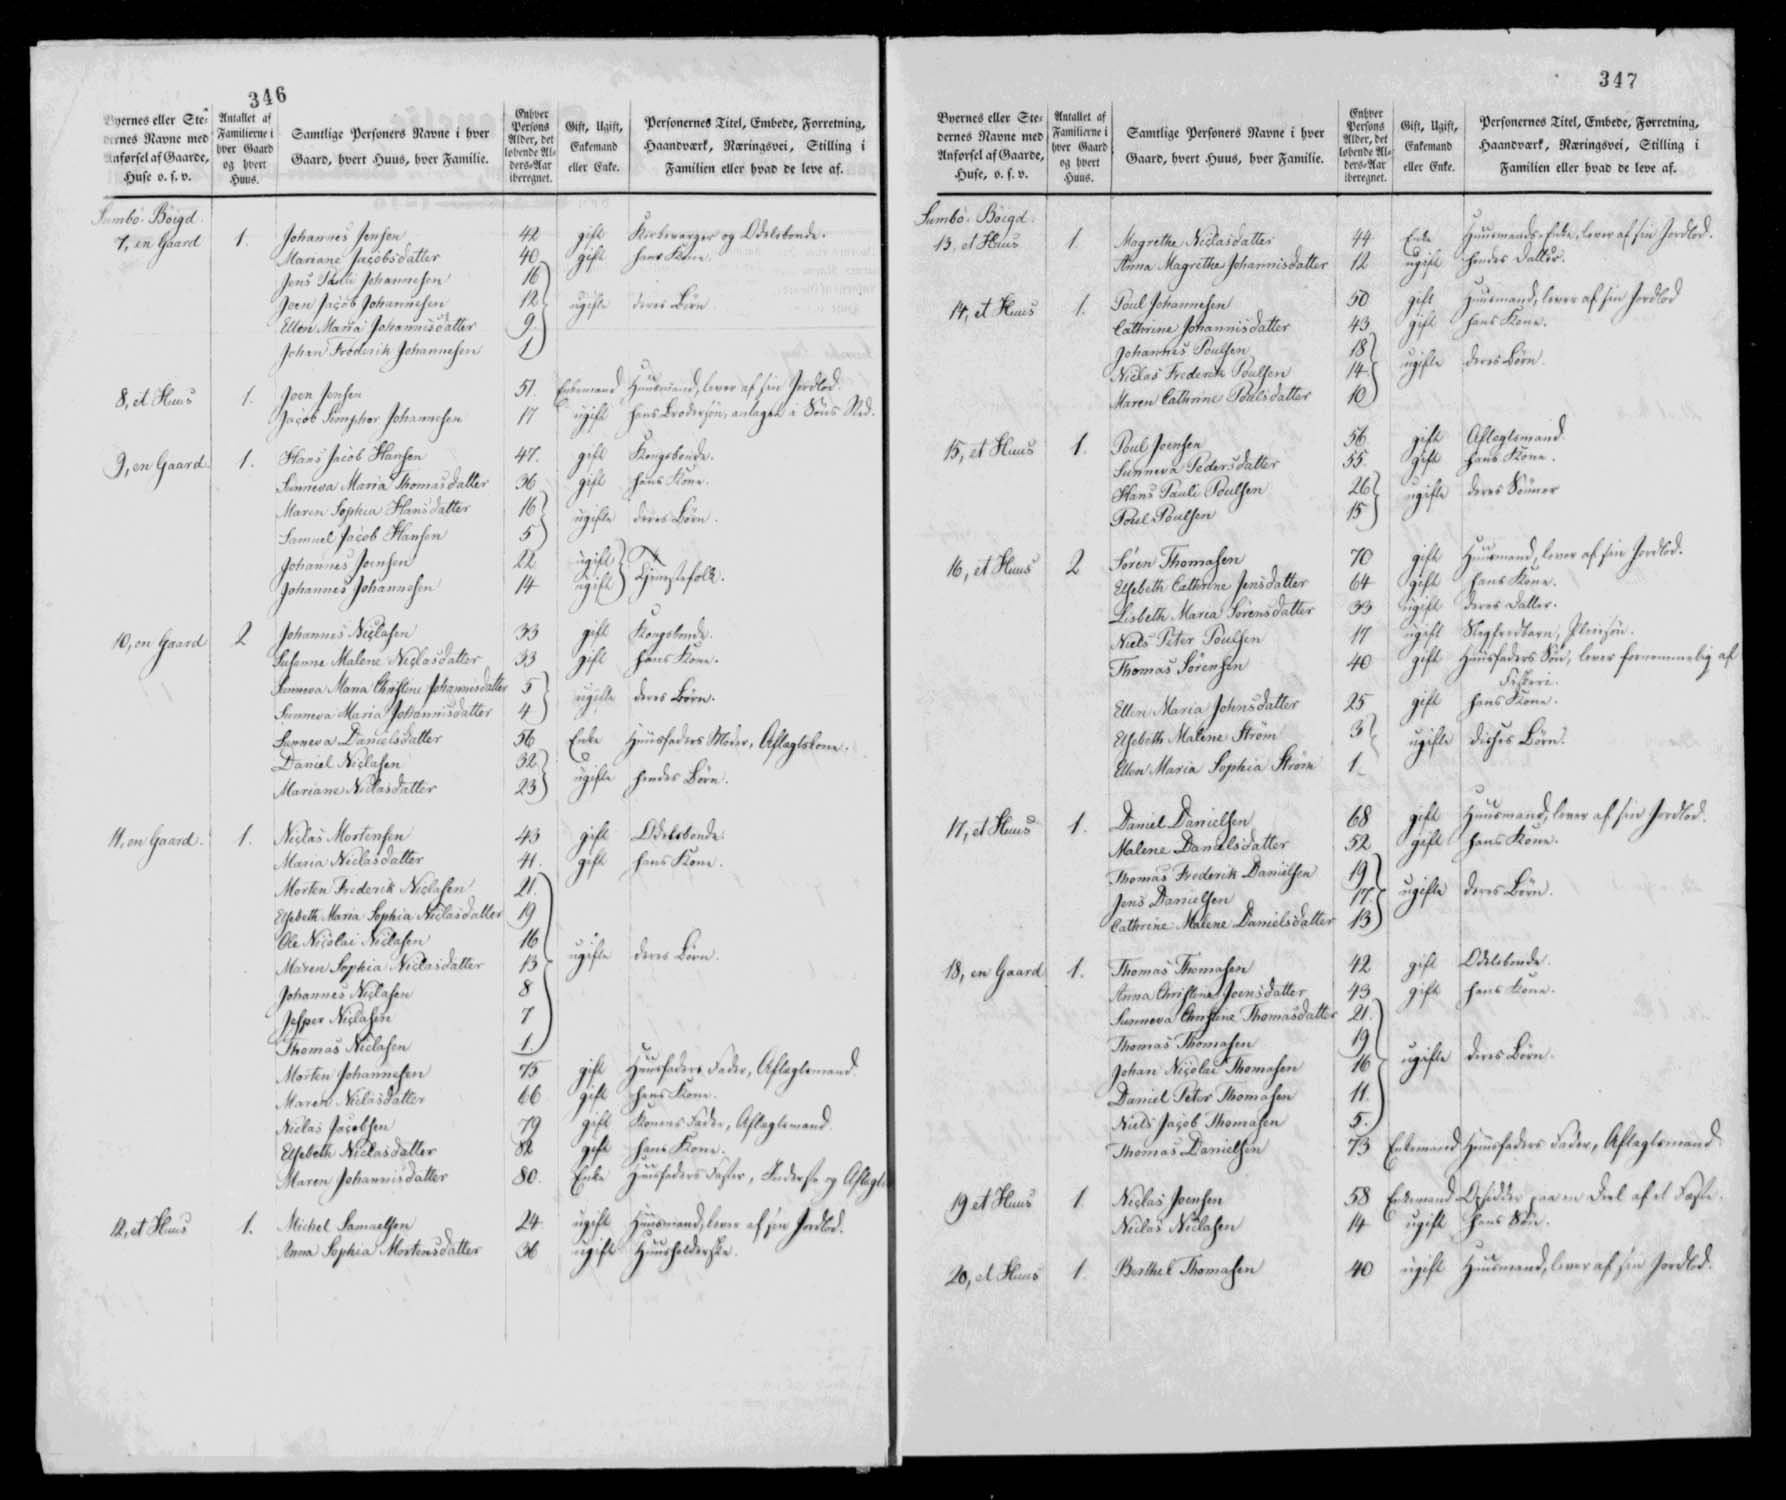 346
Byernes eller Ste-
dernes Navne med
Anførsel af Gaarde,
Huse o. s. v.
Antallet af
Familierne i
hver Gaard
og hvert
Huus.
Samtlige Personers Navne i hver
Gaard, hvert Huus, hver Familie.
Enhver
Persons
Alder, det
løbende Al-
ders-Aar
iberegnet.
Gift, Ugift,
Enkemand
eller Enke.
Personernes Titel, Embede, Forretning,
Haandværk, Næringsvei, Stilling i
Familien eller hvad de leve af.
Sumbö Böigd.
7, en Gaard 1. Johannes Jensen 42 gift Kirkeværger og Odelsbonde.
Mariane Jacobsdatter 40 gift hans Kone.
Jens Pauli Johannesen 16
Joen Jacob Johannesen 12 ugifte deres Børn.
Ellen Maria Johannisdatter 9
Johan Frederik Johannesen 1
8, et Huus 1. Joen Jensen 51. Enkemand Huusmand, lever af sin Jordlod.
Jacob Simpher Johannesen 17 ugift hans Brodersøn, antaget i Søns Sted.
9, en Gaard 1. Hans Jacob Hansen 47. gift Kongsbonde.
Sunneva Maria Thomasdatter 36 gift hans Kone.
Maren Sophia Hansdatter 16 ugifte deres Børn.
Samuel Jacob Hansen 5
Johannes Joensen 22 ugift Tjenestefolk.
Johannes Johannesen 14 ugift
10, en Gaard 2 Johannes Niclasen 33 gift Kongsbonde.
Susanne Malene Niclasdatter 33 gift hans Kone.
Sunneva Maria Christine Johannisdatter 5 ugifte deres Børn.
Sunneva Maria Johannisdatter 4
Sunneva Danielsdatter 56 Enke Huusfaders Moder, Aftægtskone.
Daniel Niclasen 32 ugifte hendes Børn.
Mariane Niclasdatter 23
11, en Gaard. 1. Niclas Mortensen 43 gift Odelsbonde.
Maria Niclasdatter 41. gift hans Kone.
Morten Frederik Niclasen 21.
Elsebeth Maria Sophia Niclasdatter 19
Ole Nicolai Niclasen 16 ugifte deres Børn.
Maren Sophia Niclasdatter 13
Johannes Niclasen 8
Jesper Niclasen 7
Thomas Niclasen 1
Morten Johannesen 75 gift Huusfaders Fader, Aftægtsmand.
Maren Niclasdatter 66 gift hans Kone.
Niclas Jacobsen 79 gift Konens Fader, Aftægtsmand.
Elsebeth Niclasdatter 82 gift hans Kone.
Maren Johannisdatter 80. Enke Huusfaders Faster, Inderste og
12, et Huus 1. Michel Samuelsen 24 ugift Huusmand, lever af sin Jordlod.
Anna Sophia Mortensdatter 36 ugift Huusholderske.
347
Byernes eller Ste-
dernes Navne med
Anførsel af Gaarde,
Huse, o. s. v.
Antallet af
Familierne i
hver Gaard
og hvert
Huus.
Samtlige Personers Navne i hver
Gaard, hvert Huus, hver Familie.
Enhver
Persons
Alder, det
løbende Al-
ders-Aar
iberegnet.
Gift, Ugift,
Enkemand
eller Enke.
Personernes Titel, Embede, Forretning,
Haandværk, Næringsvei, Stilling i
Familien eller hvad de leve af.
Sumbö Böigd.
13, et Huus 1. Magrethe Niclasdatter 44 Enke Huusmands-Enke, lever af sin Jordlod.
Anna Magrethe Johannisdatter 12 ugift hendes Datter.
14, et Huus 1. Poul Johannesen 50 gift Huusmand, lever af sin Jordlod
Cathrine Johannisdatter 43 gift hans Kone.
Johannes Poulsen 18
Niclas Frederik Poulsen 14 ugifte deres Børn.
Maren Cathrine Poulsdatter 10
15, et Huus 1. Poul Joensen 56 gift Aftægtsmand.
Sunneva Pedersdatter 55. gift hans Kone.
Hans Pauli Poulsen 26 ugifte deres Sønner
Poul Poulsen 15
16, et Huus 2 Sören Thomasen 70 gift Huusmand, lever af sin Jordlod.
Elsebeth Cathrine Jensdatter 64 gift hans Kone.
Lisbeth Maria Sörensdatter 33 ugift deres Datter.
Niels Peter Poulsen 17 ugift Slegfredbarn, Pleiesøn.
Thomas Sörensen 40 gift Huusfaders Søn, lever fornemmelig af
Fiskeri.
Ellen Maria Johnsdatter 25 gift hans Kone.
Elsebeth Malene Ström 3 ugifte disses Børn.
Ellen Maria Sophia Ström 1
17, et Huus 1. Daniel Danielsen 68 gift Huusmand, lever af sin Jordlod.
Malene Danielsdatter 52 gift hans Kone.
Thomas Frederik Danielsen 19
Jens Danielsen 17. ugifte deres Børn.
Cathrine Malene Danielsdatter 13
18, en Gaard 1. Thomas Thomasen 42 gift Odelsbonde.
Anna Christine Joensdatter 43 gift hans Kone.
Sunneva Christine Thomasdatter 21.
Thomas Thomasen 19
Johan Nicolai Thomasen 16 ugifte deres Børn.
Daniel Peter Thomasen 11.
Niels Jacob Thomasen 5.
Thomas Danielsen 73 Enkemand Huusfaders Fader, Aftægtsmand.
19 et Huus 1. Niclas Joensen 58 Enkemand Opsidder paa en Deel af et Fæste.
Niclas Niclasen 14 ugift hans Søn.
20, et Huus 1. Berthel Thomasen 40 ugift Huusmand, lever af sin Jordlod.